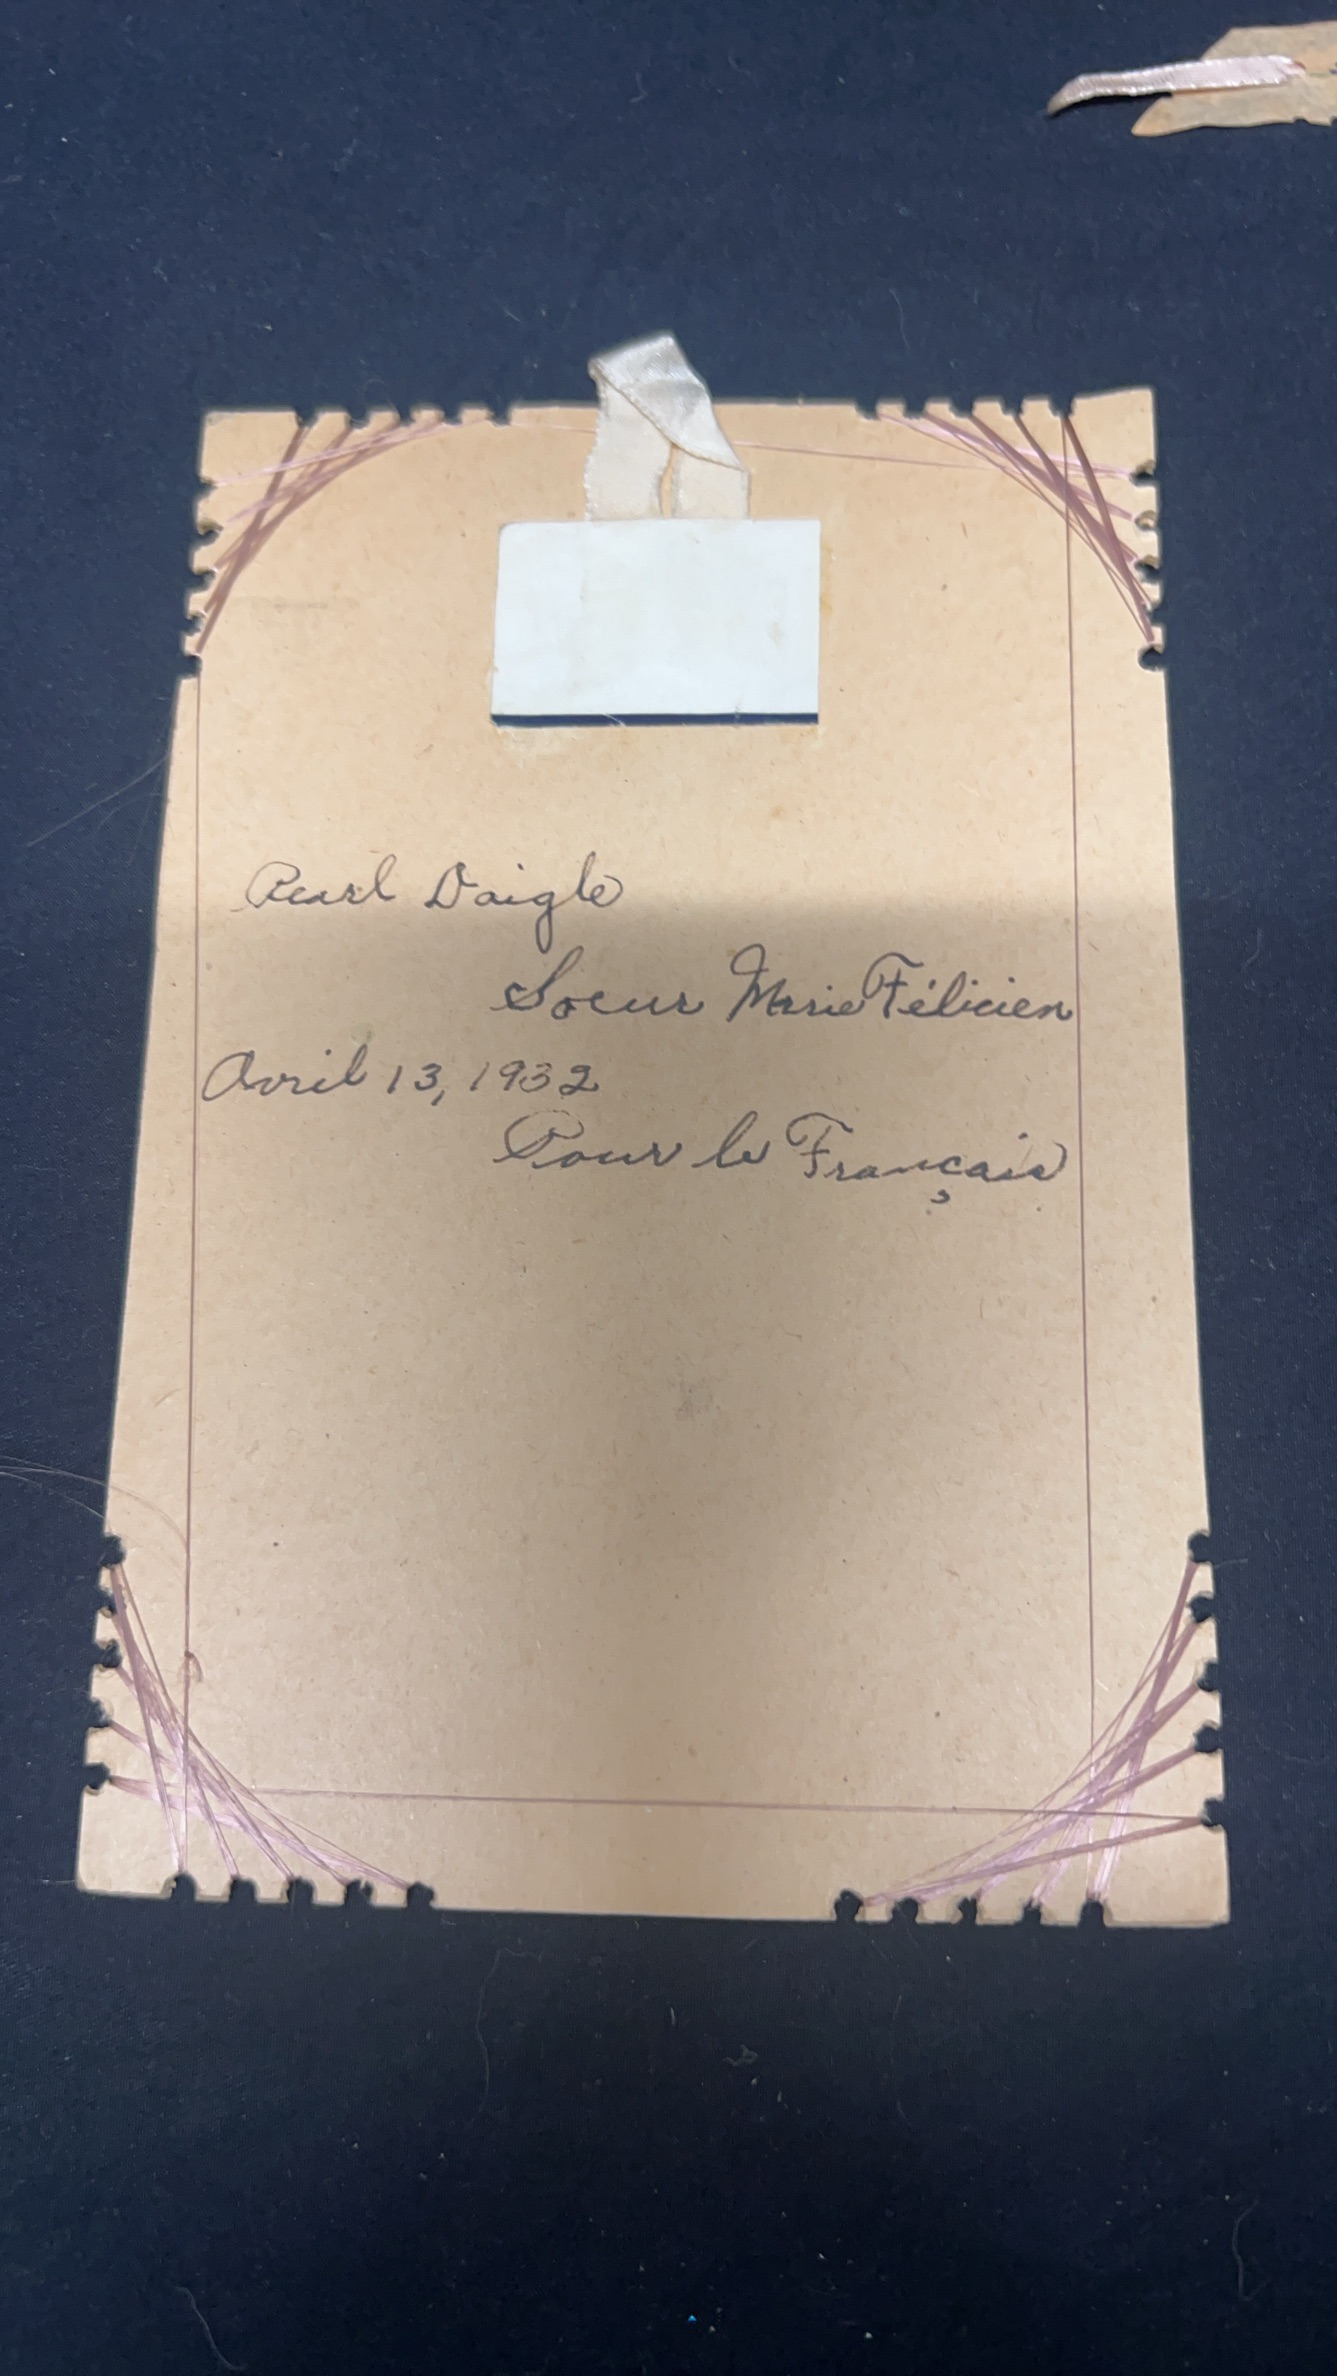 Pearl Daigle
Soeur Marie Félicien
Avril 13, 1932
Pour le Français